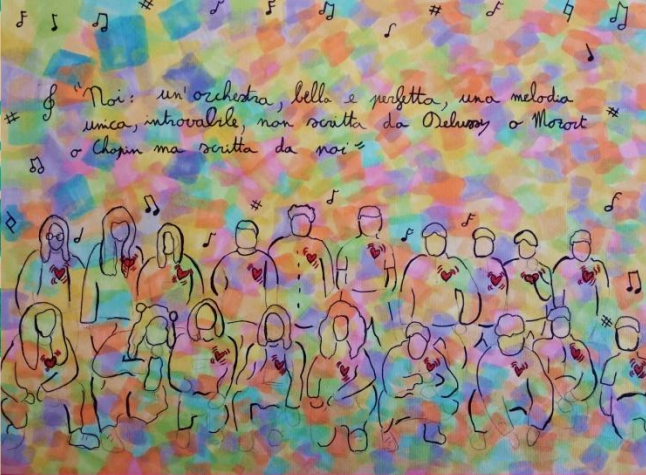 "Noi: un'orchestra, bella e perfetta, una melodia
unica, introvabile, non scritta da Debussy o Mozart
o Chopin ma scritta da noi"